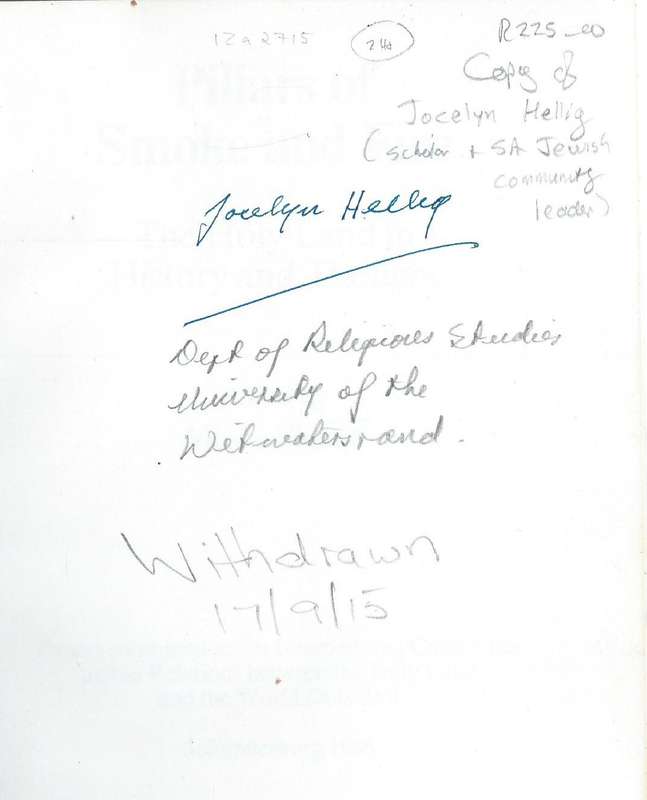 12a2715
R225-00
Copy of
Jocelyn Hellig
(scholar + SA Jewish
community
leader)
Jocelyn Hellig
Dept of Religious Studies
University of the
Witwatersrand.
Withdrawn
17/9/15
Pillars of
Smoke and
History and